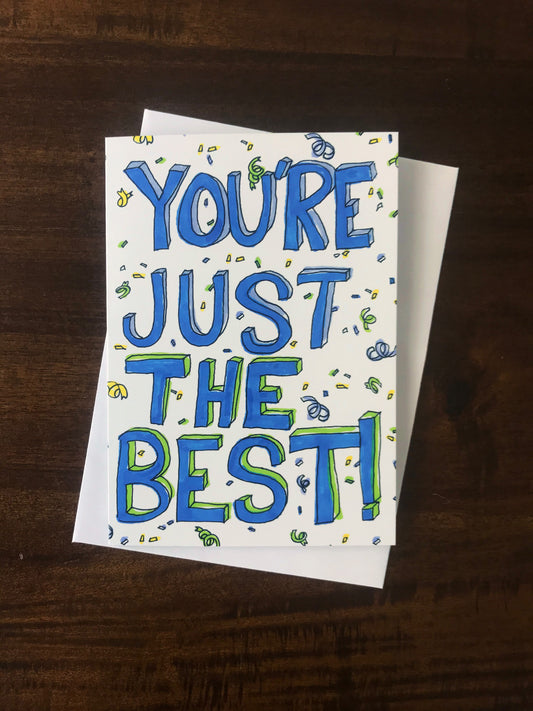 YOU'RE
JUST
THE
BEST!